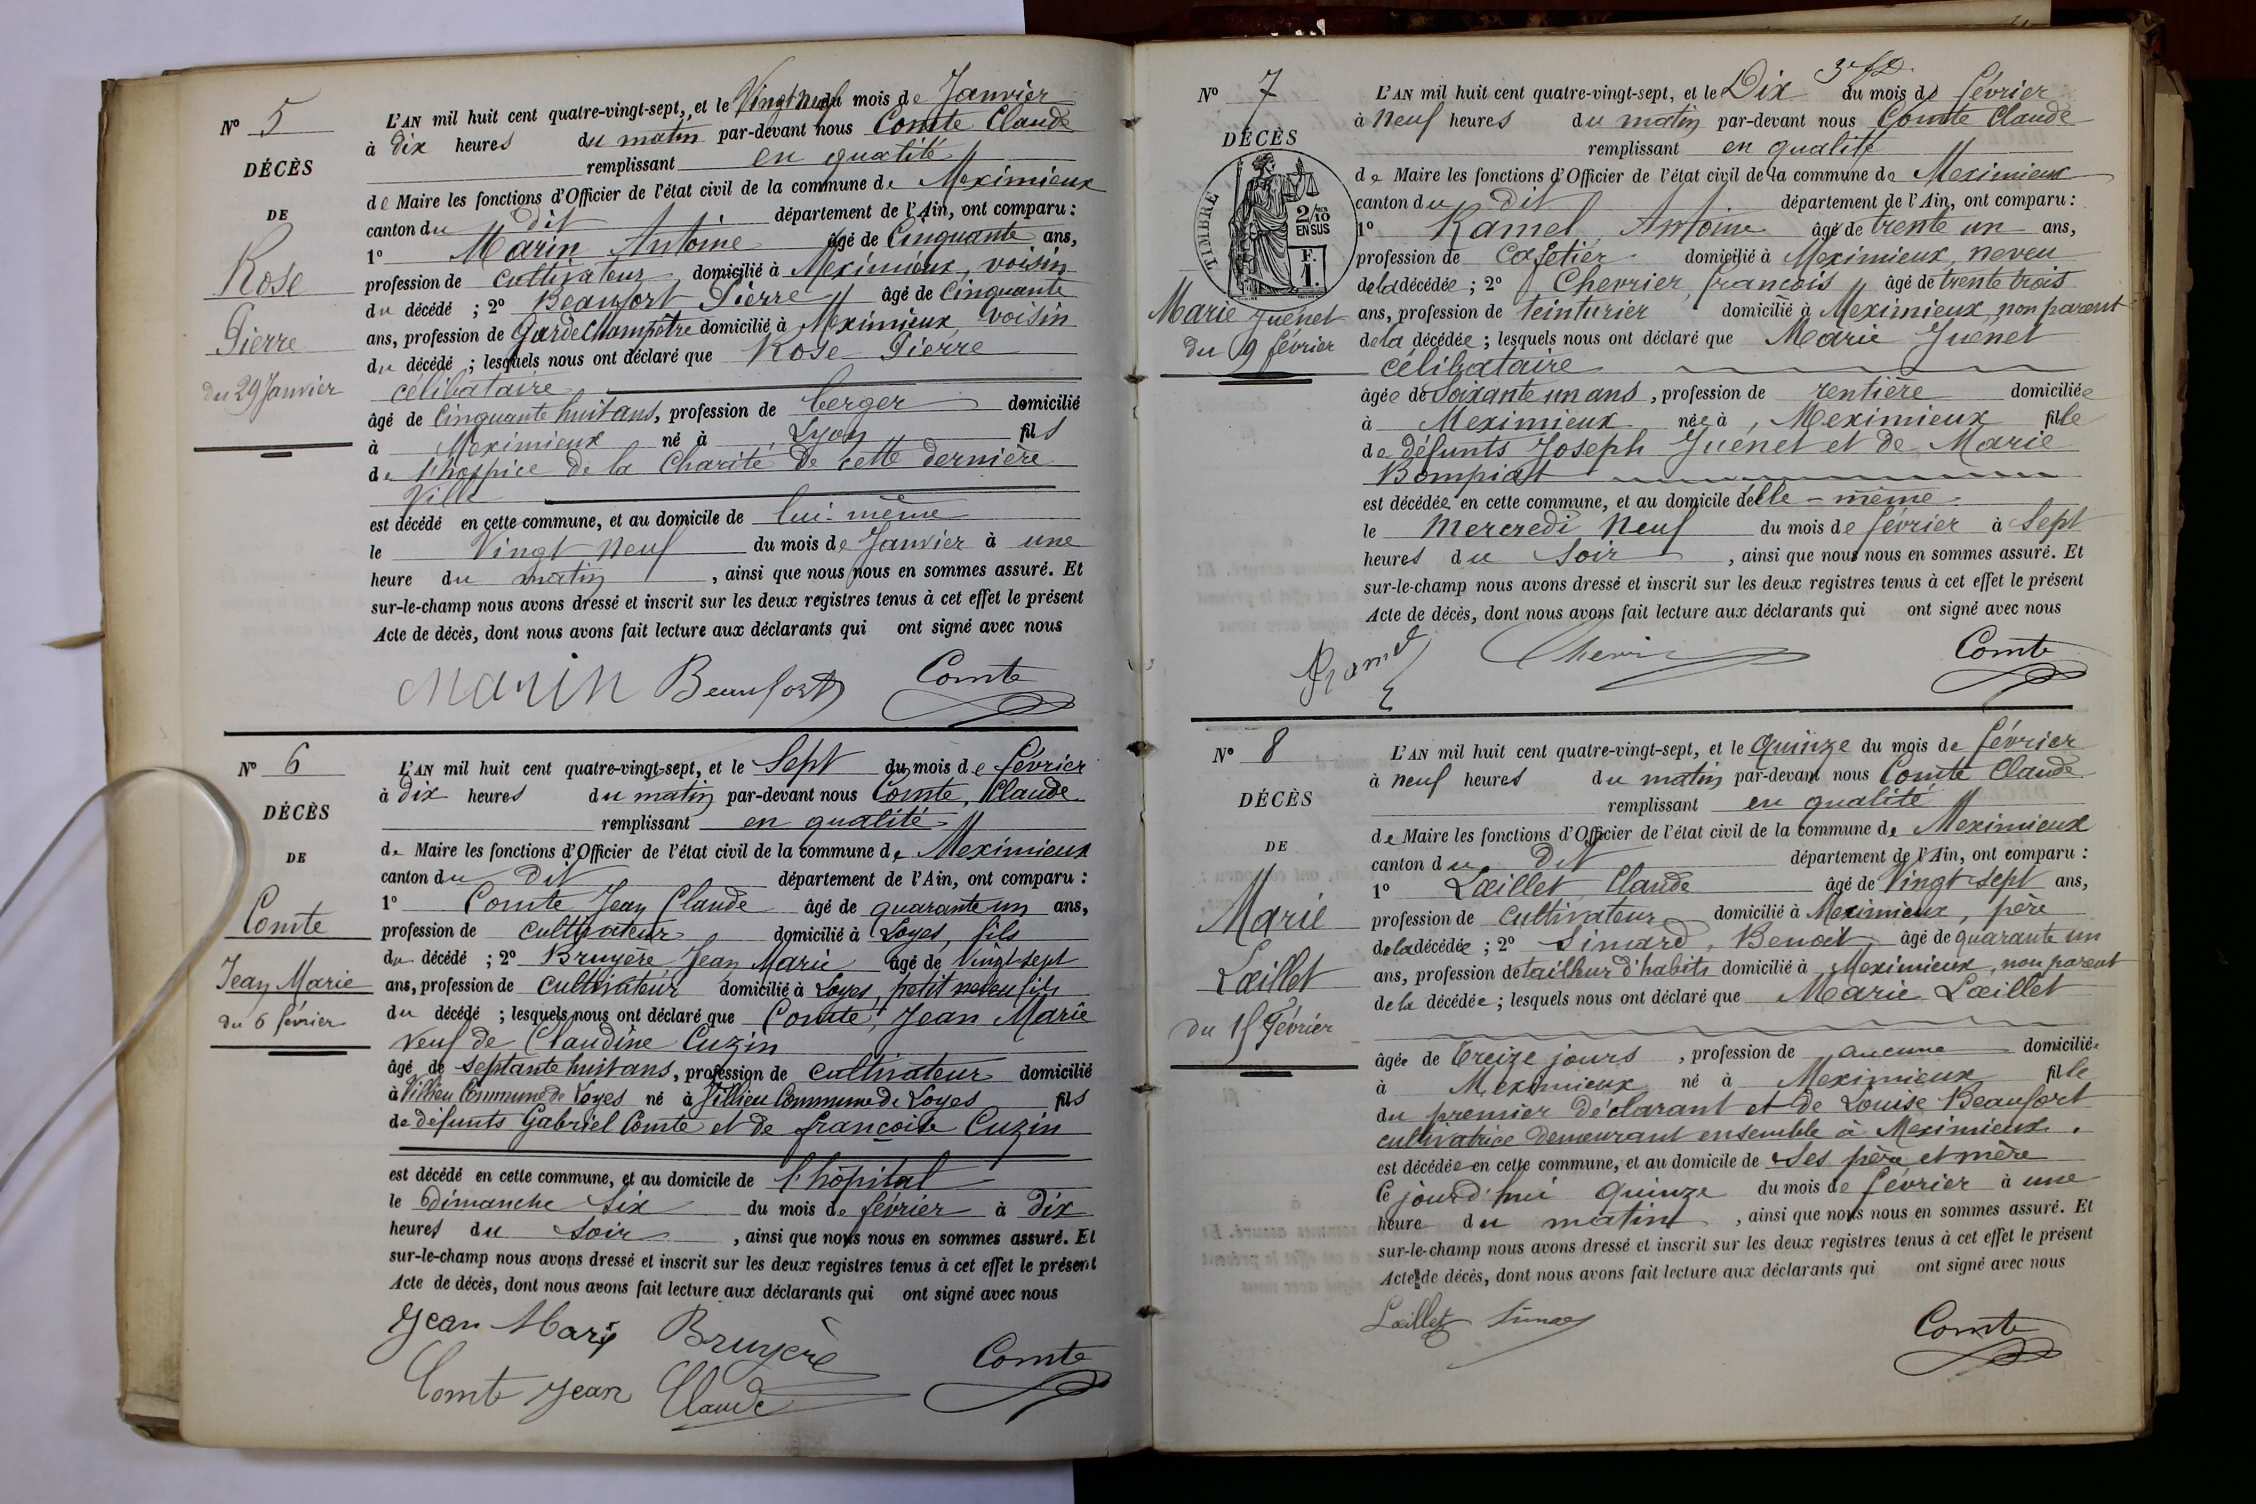 N° 5
DÉCÈS
DE
Rose
Pierre
du 29 Janvier
L'AN mil huit cent quatre-vingt-sept, et le Vingt neuf du mois de Janvier
à dix heures du matin par-devant nous Comte Claude
remplissant en qualité
de Maire les fonctions d'Officier de l'état civil de la commune de Meximieux
canton du dit département de l'Ain, ont comparu :
1° Marin Antoine âgé de Cinquante ans,
profession de cultivateur domicilié à Meximieux, voisin
du décédé ; 2° Beaufort Pierre âgé de Cinquante
ans, profession de Garde Champêtre domicilié à Meximieux voisin
du décédé ; lesquels nous ont déclaré que Rose Pierre
célibataire
âgé de Cinquante huit ans, profession de berger domicilié
à Meximieux né à Lyon fils
de l'hospice de la Charité de cette dernière
Ville
est décédé en cette commune, et au domicile de lui-même
le Vingt neuf du mois de Janvier à une
heure du matin , ainsi que nous nous en sommes assuré. Et
sur-le-champ nous avons dressé et inscrit sur les deux registres tenus à cet effet le présent
Acte de décès, dont nous avons fait lecture aux déclarants qui ont signé avec nous
Marin Beaufort Comte
N° 6
DÉCÈS
DE
Comte
Jean Marie
du 6 février
L'AN mil huit cent quatre-vingt-sept, et le Sept du mois de février
à dix heures du matin par-devant nous Comte, Claude
remplissant en qualité
de Maire les fonctions d'Officier de l'état civil de la commune de Meximieux
canton du dit département de l'Ain, ont comparu :
1° Comte Jean Claude âgé de quarante un ans,
profession de cultivateur domicilié à Loyes, fils
du décédé ; 2° Bruyère Jean Marie âgé de Vingt sept
ans, profession de cultivateur domicilié à Loyes, petit neveu fils
du décédé ; lesquels nous ont déclaré que Comte, Jean Marie
veuf de Claudine Cuzin
âgé de septante huit ans, profession de cultivateur domicilié
à Villieu Commune de Loyes né à Villieu Commune de Loyes fils
de défunts Gabriel Comte et de françoise Cuzin
est décédé en cette commune, et au domicile de l'hôpital
le dimanche Six du mois de février à dix
heures du soir , ainsi que nous nous en sommes assuré. Et
sur-le-champ nous avons dressé et inscrit sur les deux registres tenus à cet effet le présent
Acte de décès, dont nous avons fait lecture aux déclarants qui ont signé avec nous
Jean Marie Bruyère
Comte Jean Claude Comte
N° 7
DÉCÈS
TIMBRE
2/10
EN SUS
F.
1.
Marie Juénet
du 9 février
L'AN mil huit cent quatre-vingt-sept, et le Dix du mois de février
à neuf heures du matin par-devant nous Comte Claude
remplissant en qualité
de Maire les fonctions d'Officier de l'état civil de la commune de Meximieux
canton du dit département de l'Ain, ont comparu :
1° Ramel Antoine âgé de trente un ans,
profession de cafetier domicilié à Meximieux, neveu
de la décédée ; 2° Chevrier, françois âgé de trente trois
ans, profession de teinturier domicilié à Meximieux, non parent
de la décédée ; lesquels nous ont déclaré que Marie Juénet
célibataire
âgée de Soixante un ans , profession de rentière domiciliée
à Meximieux née à Meximieux fille
de défunts Joseph Juénet et de Marie
Bompiat
est décédée en cette commune, et au domicile d'elle-même
le Mercredi Neuf du mois de février à Sept
heures du soir , ainsi que nous nous en sommes assuré. Et
sur-le-champ nous avons dressé et inscrit sur les deux registres tenus à cet effet le présent
Acte de décès, dont nous avons fait lecture aux déclarants qui ont signé avec nous
Ramel Comte
N° 8
DÉCÈS
DE
Marie
Lœillet
du 15 Février
L'AN mil huit cent quatre-vingt-sept, et le Quinze du mois de février
à neuf heures du matin par-devant nous Comte Claude
remplissant en qualité
de Maire les fonctions d'Officier de l'état civil de la commune de Meximieux
canton du dit département de l'Ain, ont comparu :
1° Lœillet Claude âgé de Vingt sept ans,
profession de cultivateur domicilié à Meximieux, père
de la décédée ; 2° Simard, Benoit, âgé de quarante un
ans, profession de tailleur d'habits domicilié à Meximieux, non parent
de la décédée ; lesquels nous ont déclaré que Marie Lœillet
âgée de treize jours , profession de aucune domiciliée
à Meximieux né à Meximieux fille
du premier déclarant et de Louise Beaufort
cultivatrice demeurant ensemble à Meximieux.
est décédée en cette commune, et au domicile de ses père et mère
Ce jourd'hui Quinze du mois de février à une
heure du matin , ainsi que nous nous en sommes assuré. Et
sur-le-champ nous avons dressé et inscrit sur les deux registres tenus à cet effet le présent
Acte de décès, dont nous avons fait lecture aux déclarants qui ont signé avec nous
Lœillet Comte